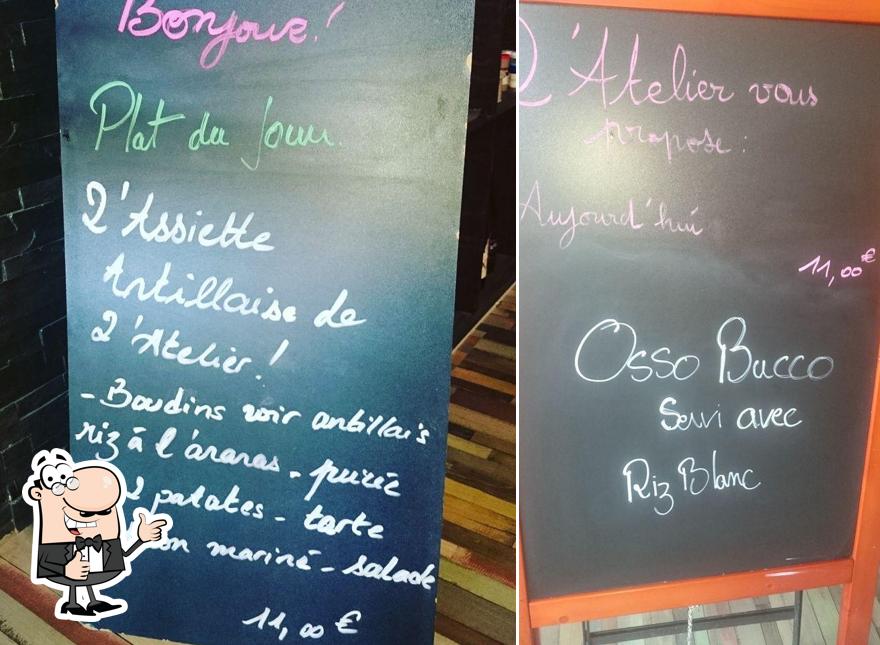 Bonjour!
Plat du jour
L'Assiette
Antillaise de
L'Atelier!
- Boudins noir antillais
riz à l'ananas - purée
2 patates - tarte
mariné - salade
11,00 €
L'Atelier vous
propose :
Aujourd'hui
11,00€
Osso Bucco
Servi avec
Riz Blanc